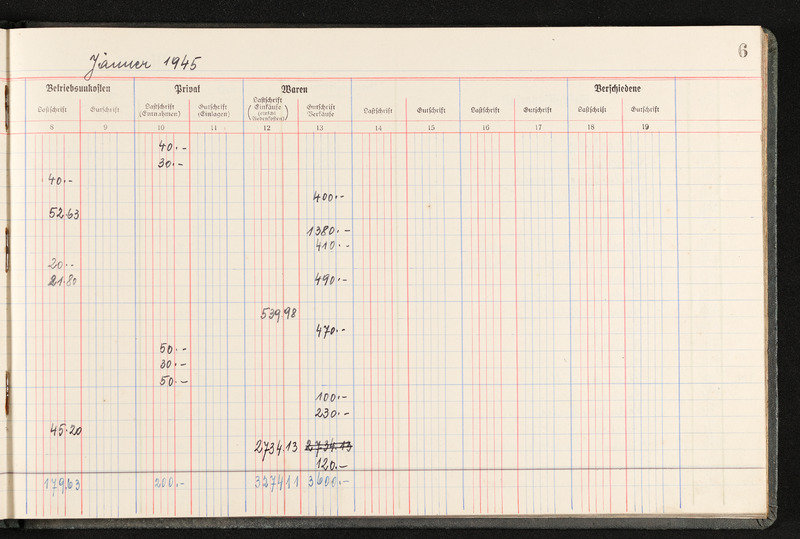 6
Jänner 1945
Betriebsunkosten Privat Waren Verschiedene
Lastschrift Gutschrift Lastschrift (Entnahmen) Gutschrift (Einlagen) Lastschrift (Einkäufe) Gutschrift Verkäufe Lastschrift Gutschrift Lastschrift Gutschrift Lastschrift Gutschrift
8 9 10 11 12 13 14 15 16 17 18 19
40.-
30.-
40.-
400.-
52.63
1380.-
410.-
20.-
21.80 490.-
539.98
470.-
50.-
30.-
50.-
100.-
230.-
45.20
2734.13 2734.13
120.-
179.63 200.- 3274.11 3600.-